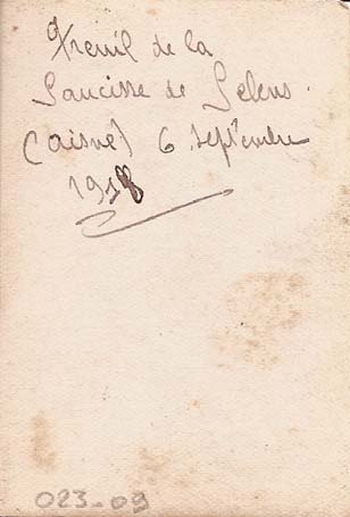 Treuil de la
Saucisse de Selens.
(aisne) 6 Septembre
1918
023-09